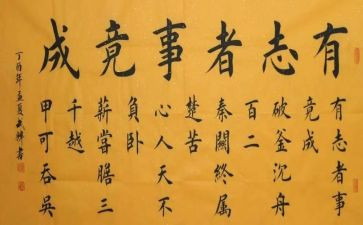 有志者事竟成
有志者事
竟成
破釜沉舟
百二
秦關終属
楚苦
心人天不
負卧
薪嘗膽三
千越
甲可吞吳
丁酉年孟夏書